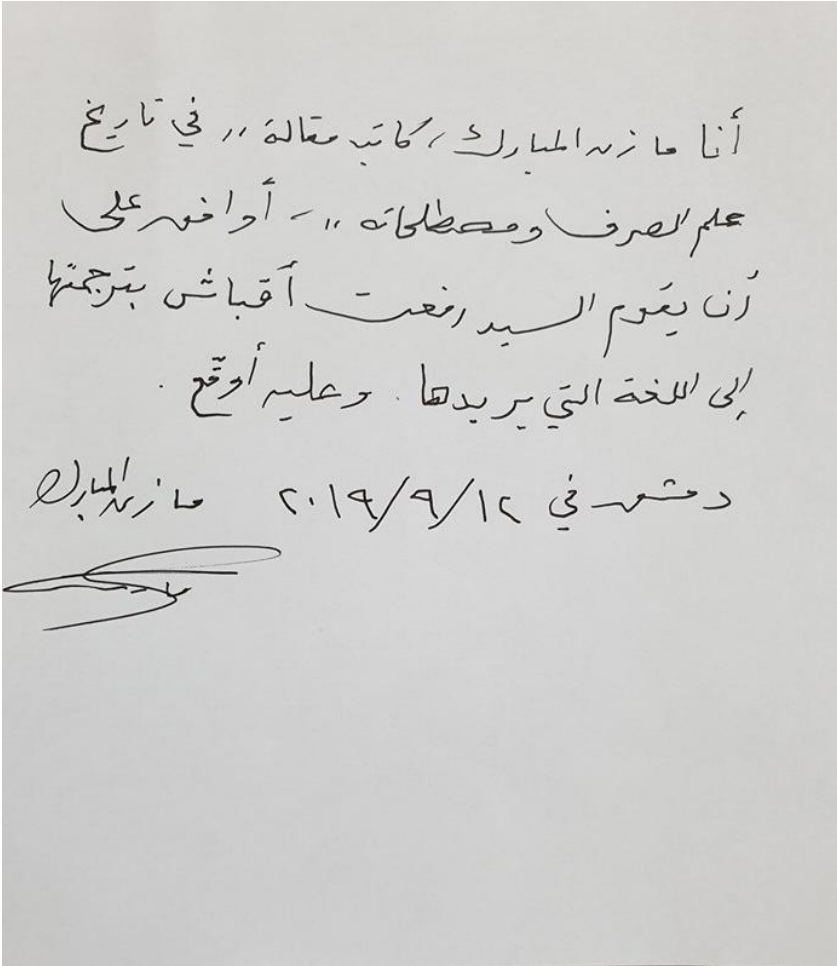 أنا مازن المبارك، كاتب مقالة ,, في تاريخ
علم الصرف ومصطلحاته ,, - أوافق على
أن يقوم السيد رفعت أقباش بترجمتها
إلى اللغة التي يريدها. وعليه أوقّع.
دمشق في ٢٠١٩/٩/١٢ مازن المبارك
مازن